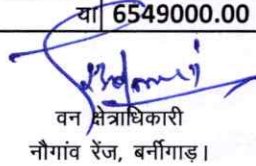 या 6549000.00
वन क्षेत्राधिकारी
नौगांव रेंज, बर्नीगाड़।